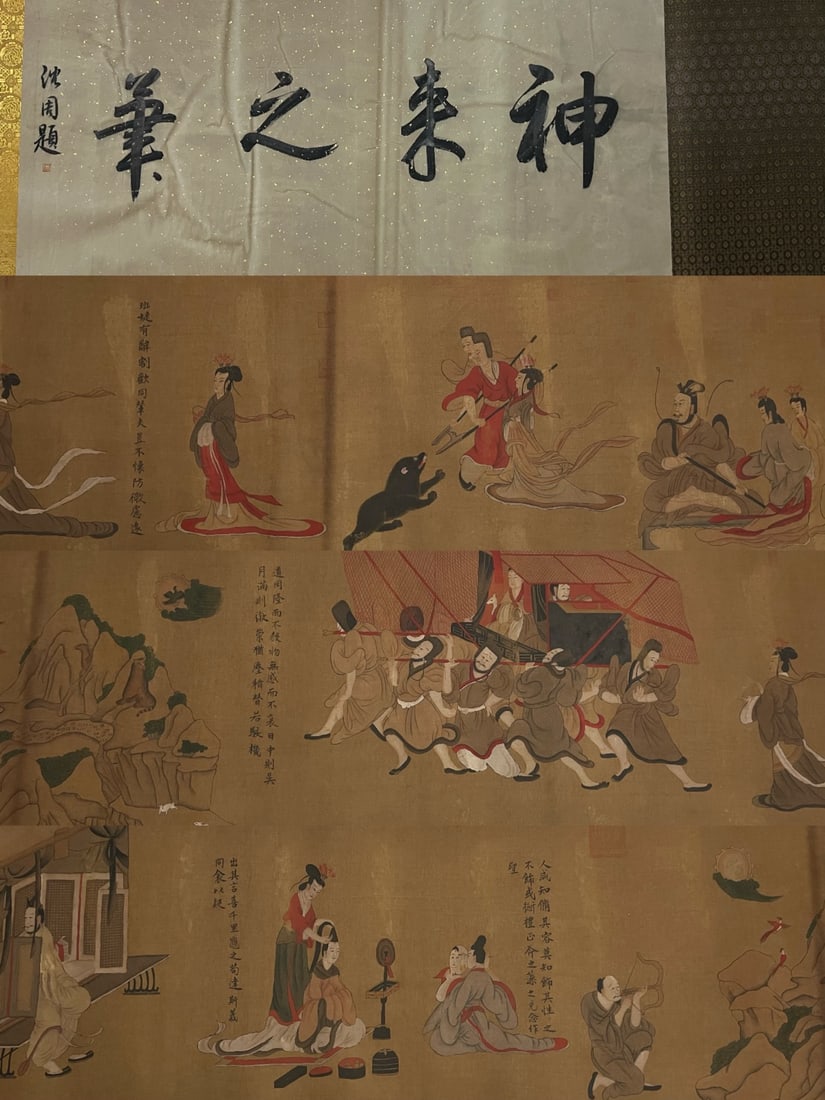 神来之筆
沈周題
班婕有辭割歡同輦夫豈不懷防微慮遠
道罔隆而不殺物無盛而不衰日中則昃
月滿則微崇猶塵積替若駭機
人咸知脩其容莫知飾其性之
不飾或愆禮正斧之藻之克念作
聖
出其言善千里應之苟違斯義
同衾以疑